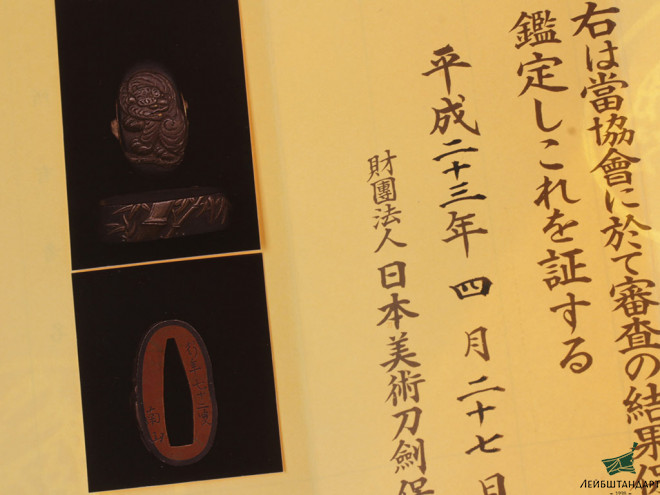 右は當協會に於て審査の結果保
鑑定しこれを証する
平成二十三年四月二十七日
財團法人日本美術刀劍保
ЛЕЙБШТАНДАРТ